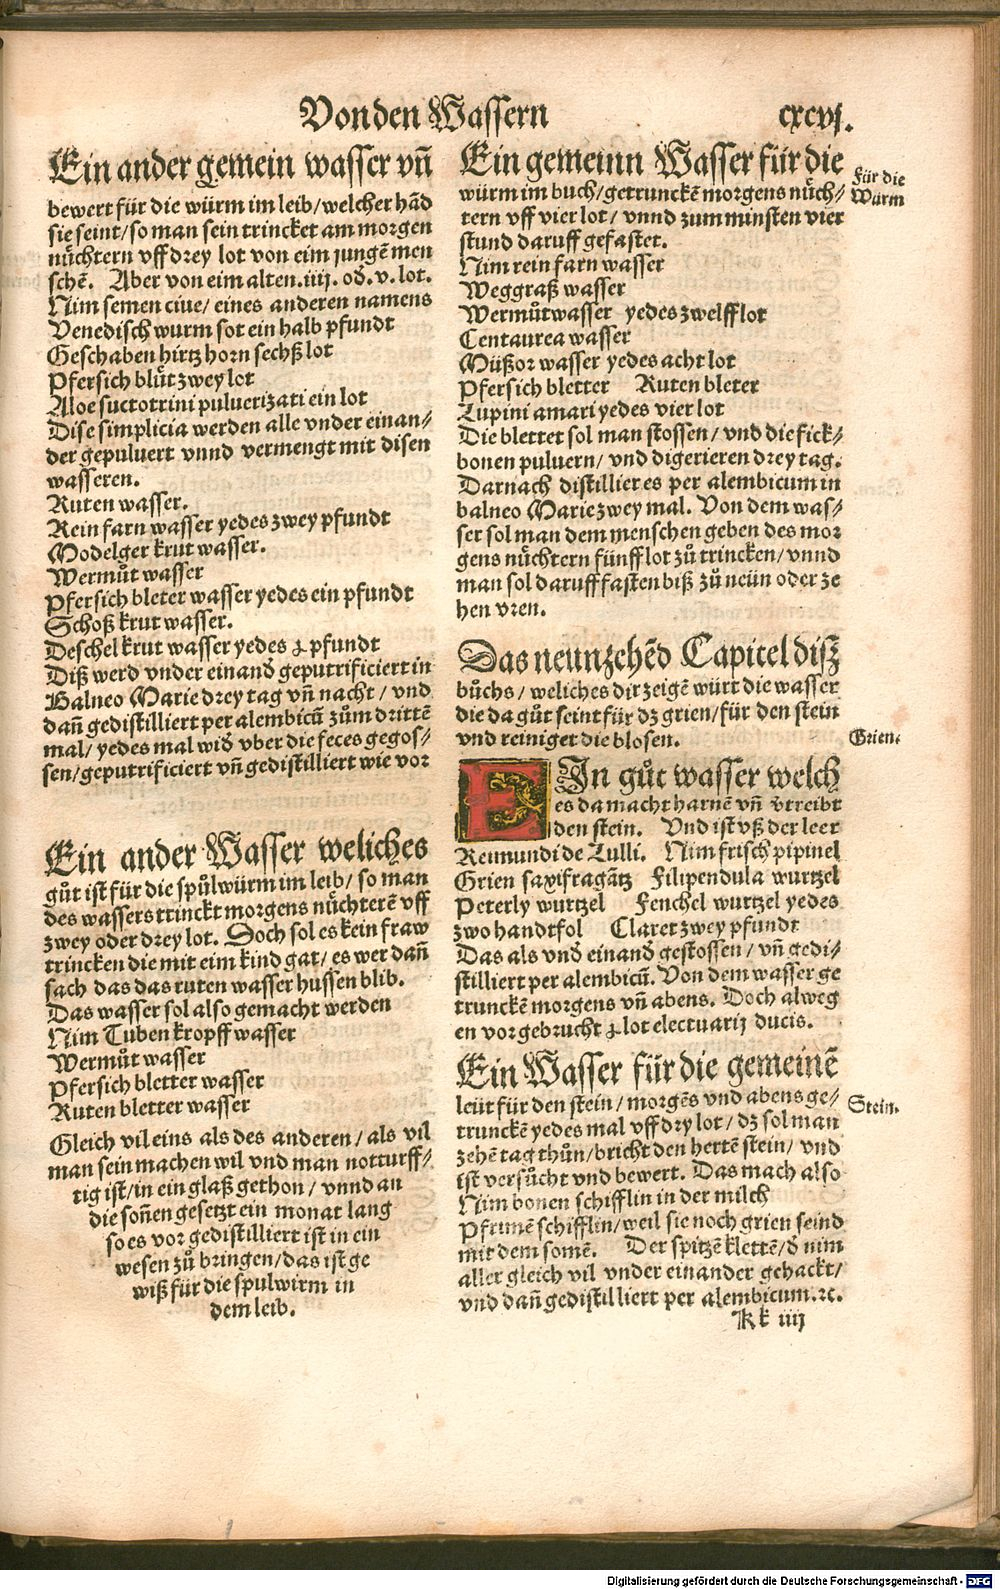 Von den Wassern
cxcvj.
Ein ander gemein wasser vn̄
bewert für die würm im leib/welcher hād
sie seint/so man sein trincket am morgen
nüchtern vff drey lot von eim jungē men
schē. Aber von eim alten .iiij. od̄. v. lot.
Nim semen cine/ eines anderen namens
Venedisch wurm sot ein halb pfundt
Geschaben hirtz horn sechß lot
Pfersich blůt zwey lot
Aloe suctotrini puluerizati ein lot
Dise simplicia werden alle vnder einan⸗
der gepuluert vnnd vermengt mit disen
wasseren.
Ruten wasser.
Rein farn wasser yedes zwey pfundt
Modelger krut wasser.
Wermůt wasser
Pfersich bleter wasser yedes ein pfundt
Schoß krut wasser.
Deschel krut wasser yedes ꝛ pfundt
Diß werd vnder einand̄ geputrificiert in
Balneo Marie drey tag vn̄ nacht / vnd
dan̄ gedistilliert per alembicū zům drittē
mal/ yedes mal wid̄ vber die feces gegos⸗
sen/geputrificiert vn̄ gedistilliert wie vor
Ein ander Wasser weliches
gůt ist für die spůlwürm im leib/ so man
des wassers trinckt morgens nüchterē vff
zwey oder drey lot. Doch sol es kein fraw
trincken die mit eim kind gat/ es wer dan̄
sach das das ruten wasser hussen blib.
Das wasser sol also gemacht werden
Nim Tuben kropff wasser
Wermůt wasser
Pfersich bletter wasser
Ruten bletter wasser
Gleich vil eins als des anderen/ als vil
man sein machen wil vnd man notturff⸗
tig ist/in ein glaß gethon/ vnnd an
die son̄en gesetzt ein monat lang
so es vor gedistilliert ist in ein
wesen zů bringen/das ist ge
wiß für die spulwirm in
dem leib.
Ein gemeinn Wasser für die
würm im buch/getrunckē morgens nüch⸗
tern vff vier lot/ vnnd zum minsten vier
stund daruff gefastet.
Nim rein farn wasser
Weggraß wasser
Wermůtwasser yedes zwelff lot
Centaurea wasser
Müßor wasser yedes acht lot
Pfersich bletter Ruten bleter
Lupini amari yedes vier lot
Die blettet sol man stossen/ vnd die fick⸗
bonen puluern/ vnd digerieren drey tag.
Darnach distillier es per alembicum in
balneo Marie zwey mal. Von dem was⸗
ser sol man dem menschen geben des mor
gens nüchtern fünff lot zů trincken/ vnnd
man sol daruff fasten biß zů neün oder ze
hen vren.
Für die
Würm
Das neunzehēd Capitel disz
bůchs/ weliches dir zeigē würt die wasser
die da gůt seint für dz grien/für den stein
vnd reiniget die blosen.
Grien.
EIn gůt wasser welch
es da macht harnē vn̄ v̄treibt
den stein. Vnd ist vß der leer
Reimundi de Lulli. Nim frisch pipinel
Grien saxifragātz Filipendula wurtzel
Peterly wurtzel Fenchel wurtzel yedes
zwo handtfol Claret zwey pfundt
Das als vnd einand̄ gestossen/ vn̄ gedi⸗
stilliert per alembicū. Von dem wasser ge
trunckē morgens vn̄ abens. Doch alweg
en vor gebrucht ꝛ lot electuarij ducis.
Ein Wasser für die gemeinē
leüt für den stein/ morgēs vnd abens ge⸗
trunckē yedes mal vff dry lot/ dz sol man
zehē tag thůn/bricht den hertē stein/ vnd
ist versůcht vnd bewert. Das mach also
Nim bonen schifflin in der milch
Pfrimē schifflin/weil sie noch grien seind
mit dem somē. Der spitzē klettē/d̄ nim
aller gleich vil vnder einander gehackt/
vnd dan̄ gedistilliert per alembicum.ꝛc.
Stein.
Kk iiij
Digitalisierung gefördert durch die Deutsche Forschungsgemeinschaft - DFG